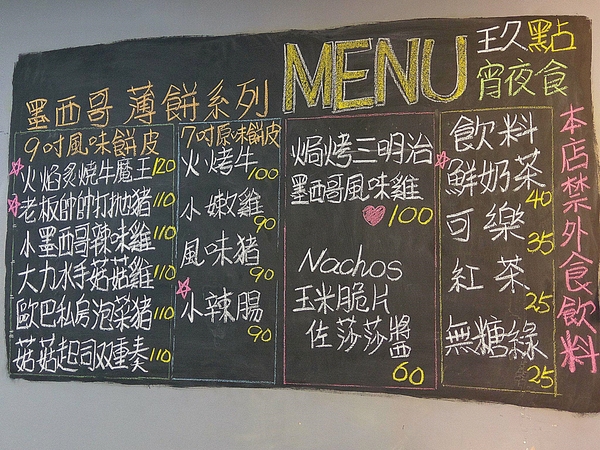 MENU
玨久點
宵夜食
墨西哥 薄餅系列
9吋風味餅皮
火焰炙燒牛魔王120
老板帥帥打拋豬110
小墨西哥辣味雞110
大力水手菇菇雞110
歐巴私房泡菜豬110
菇菇起司双重奏110
7吋原味餅皮
火烤牛100
小嫩雞90
風味豬90
小辣腸90
焗烤三明治
墨西哥風味雞
100
Nachos
玉米脆片
佐莎莎醬
60
飲料
鮮奶茶40
可樂35
紅茶25
無糖綠25
本店禁外食飲料